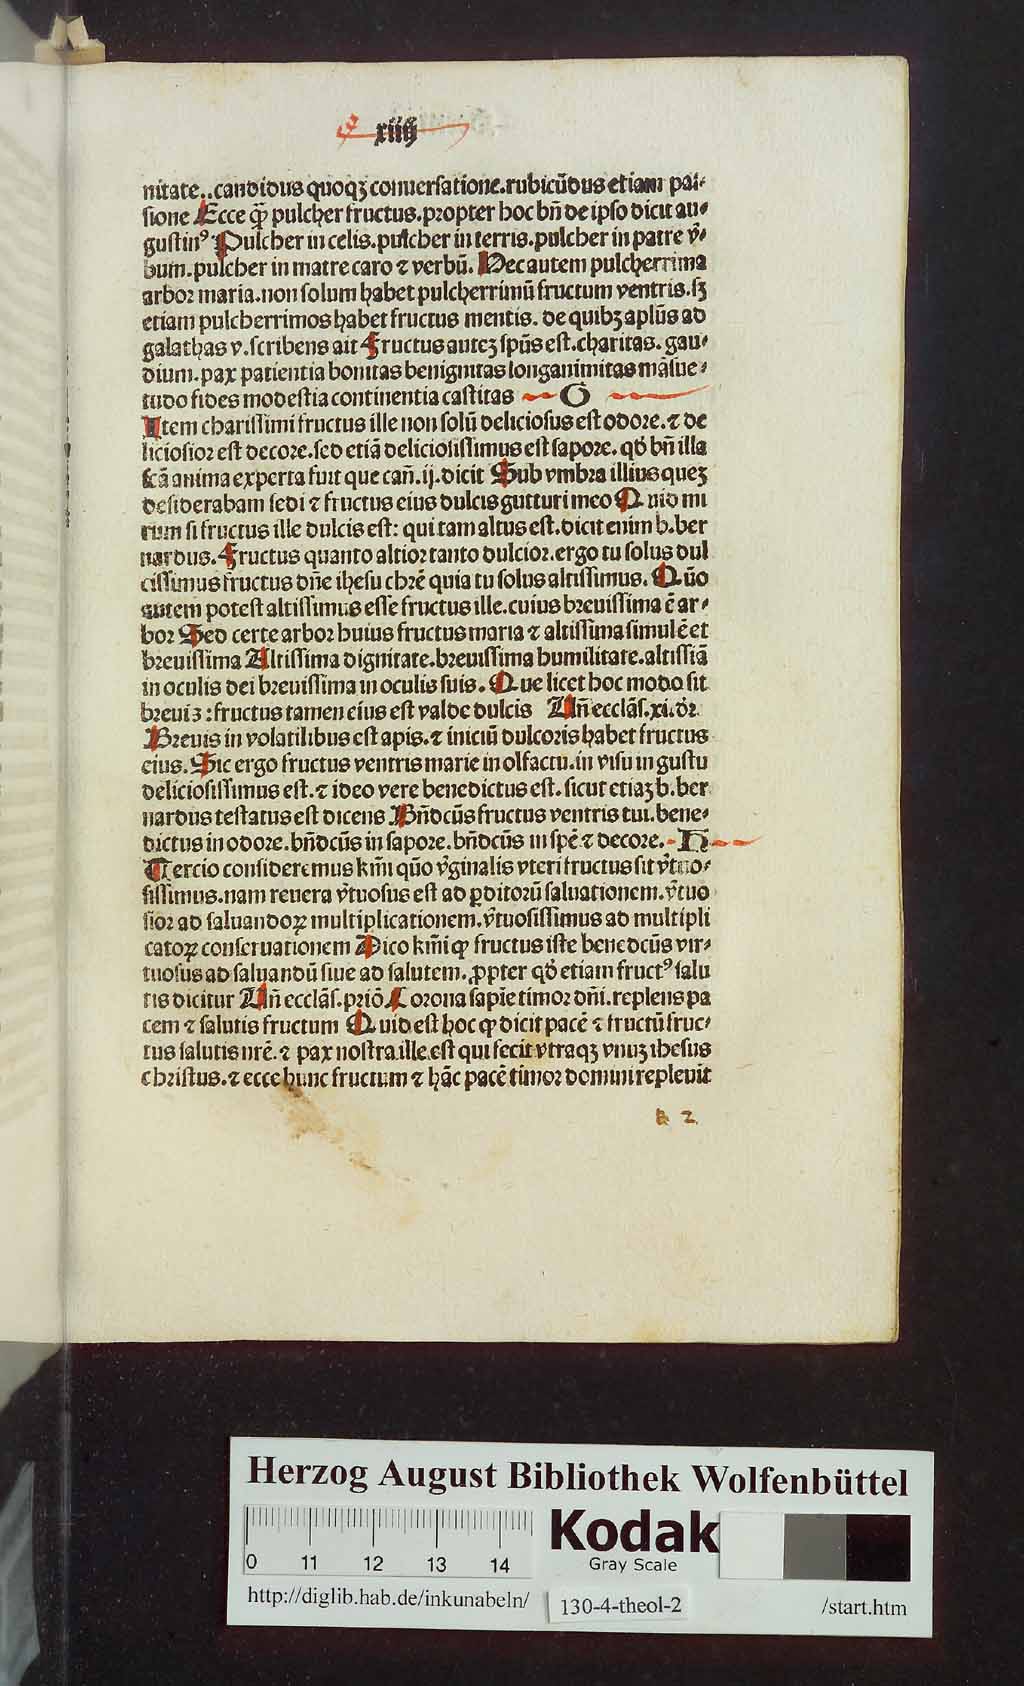 xiiij
nitate..candidus quoqꝫ conuersatione.rubicūdus etiam pas⸗
sione Ecce qꝫ̄ pulcher fructus.propter hoc bn̄ de ipso dicit au⸗
gustinꝰ Pulcher in celis.pulcher in terris.pulcher in patre v̄⸗
bum.pulcher in matre caro ⁊ verbū. Hec autem pulcherrima
arbor maria.non solum habet pulcherrimū fructum ventris.sꝫ
etiam pulcherrimos habet fructus mentis. de quibꝫ aplūs ad
galathas v.scribens ait Fructus auteꝫ spūs est.charitas. gau⸗
dium.pax patientia bonitas benignitas longanimitas māsue⸗
tudo fides modestia continentia castitas G
Item charissimi fructus ille non solū deliciosus est odore.⁊ de
liciosior est decore.sed etiā deliciosissimus est sapore. qđ bn̄ illa
scā anima experta fuit que cañ.ij.dicit Sub vmbra illius queꝫ
desiderabam sedi ⁊ fructus eius dulcis gutturi meo Quid mi
rum si fructus ille dulcis est: qui tam altus est.dicit enim b.ber
nardus. Fructus quanto altior tanto dulcior.ergo tu solus dul
cissimus fructus dn̄e ihesu chrē quia tu solus altissimus. Quō
autem potest altissimus esse fructus ille.cuius breuissima ē ar⸗
bor Sed certe arbor huius fructus maria ⁊ altissima simul ē et
breuissima Altissima dignitate.breuissima humilitate.altissiā
in oculis dei breuissima in oculis suis. Que licet hoc modo sit
breuis :fructus tamen eius est valde dulcis Vn̄ ecclās.xi.dr̄
Breuis in volatilibus est apis.⁊ iniciū dulcoris habet fructus
eius. Sic ergo fructus ventris marie in olfactu.in visu in gustu
deliciosissimus est.⁊ ideo vere benedictus est. sicut etiaꝫ b.ber
nardus testatus est dicens Bn̄dcūs fructus ventris tui. bene⸗
dictus in odore.bn̄dcūs in sapore.bn̄dcūs in spē ⁊ decore. H
Tercio consideremus kmi̅ quō v̄ginalis vteri fructus sit v̄tuo⸗
sissimus.nam reuera v̄tuosus est ad ꝑditorū saluationem.v̄tuo
sior ad saluandoꝝ multiplicationem.v̄tuosissimus ad multipli
catoꝝ conseruationem Dico kmi̅ qꝫ fructus iste benedcūs vir⸗
tuosus ad saluandū siue ad salutem.ꝓpter qđ etiam fructꝰ salu
tis dicitur Vn̄ ecclās.priō Corona sapiē timor dn̄i.replens pa
cem ⁊ salutis fructum Quid est hoc qꝫ dicit pacē ⁊ fructū fruc⸗
tus salutis nrē.⁊ pax nostra ille.est qui fecit vtraqꝫ vnuꝫ ihesus
christus.⁊ ecce hunc fructum ⁊ hāc pacē timor domini repleuit
2
Herzog August Bibliothek Wolfenbüttel
0 11 12 13 14
Kodak
Gray Scale
http://diglib.hab.de/inkunabeln/ 130-4-theol-2 /start.htm